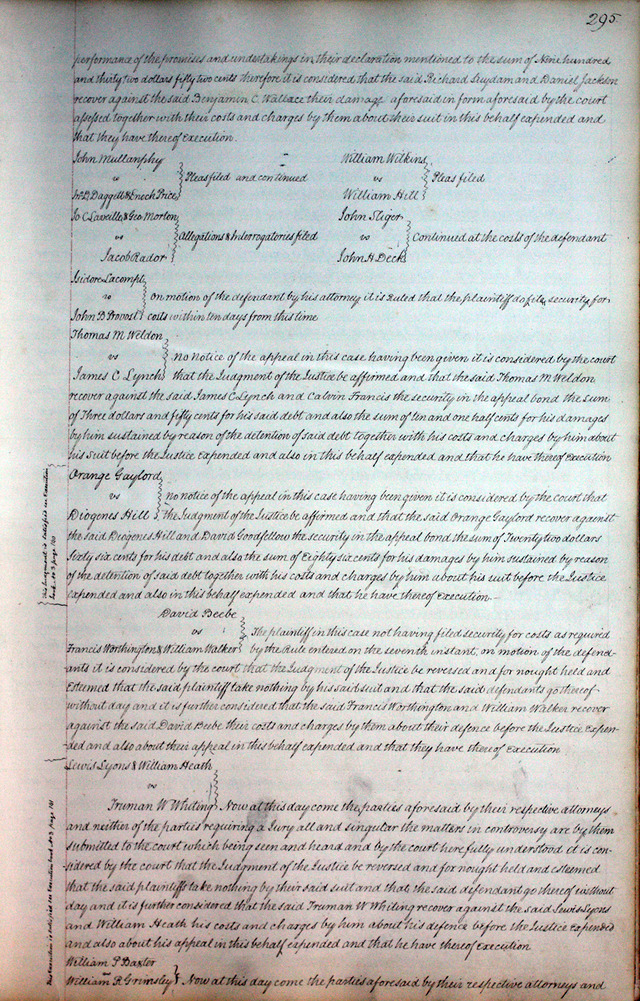 295
performance of the promises and undertakings in their declaration mentioned to the sum of Nine hundred
and thirty two dollars fifty two cents therefore it is considered that the said Richard Suydam and Daniel Jackson
recover against the said Benjamin C. Wallace their damage aforesaid in form aforesaid by the court
assessed together with their costs and charges by them about their suit in this behalf expended and
that they have thereof Execution.
John Mullanphy
vs Pleas filed and continued
Jno D. Daggett & Enoch Price
William Wilkins
vs Pleas filed
William Hill
Jo C Laveille & Geo Morton
vs Allegations & Interrogatories filed
Jacob Rador
John Stiger
vs Continued at the costs of the defendant
John H Deck
Isidore Lacompt
vs on motion of the defendant by his attorney it is Ruled that the plaintiff do file security for
John B Provost costs within ten days from this time
Thomas M Weldon
vs no notice of the appeal in this case having been given it is considered by the court
James C Lynch that the Judgment of the Justice be affirmed and that the said Thomas M Weldon
recover against the said James C Lynch and Calvin Francis the security in the appeal bond the sum
of Three dollars and fifty cents for his said debt and also the sum of ten and one half cents for his damages
by him sustained by reason of the detention of said debt together with his costs and charges by him about
his suit before the Justice Expended and also in this behalf expended and that he have thereof Execution
Orange Gaylord
vs no notice of the appeal in this case having been given it is considered by the court that
Diogenes Hill the Judgment of the Justice be affirmed and that the said Orange Gaylord recover against
the said Diogenes Hill and David Goodfellow the security in the appeal bond the sum of Twenty two dollars
Sixty six cents for his debt and also the sum of Eighty six cents for his damages by him sustained by reason
of the detention of said debt together with his costs and charges by him about his suit before the Justice
expended and also in this behalf expended and that he have thereof Execution.
This Judgment is Satisfied see Execution
book page
David Beebe
vs The plaintiff in this case not having filed security for costs as required
Francis Worthington & William Walker by the Rule entered on the seventh instant, on motion of the defend-
ants it is considered by the court that the Judgment of the Justice be reversed and for nought held and
Esteemed that the said plaintiff take nothing by his said suit and that the said defendants go thereof
without day and it is further considered that the said Francis Worthington and William Walker recover
against the said David Beebe their costs and charges by them about their defence before the Justice Expen-
ded and also about their appeal in this behalf expended and that they have thereof Execution
Lewis Lyons & William Heath
vs
Truman W Whiting Now at this day come the parties aforesaid by their respective attorneys
and neither of the parties requiring a Jury all and singular the matters in controversy are by them
submitted to the court which being seen and heard and by the court here fully understood it is con-
sidered by the court that the Judgment of the Justice be reversed and for nought held and esteemed
that the said plaintiffs take nothing by their said suit and that the said defendant go thereof without
day and it is further considered that the said Truman W Whiting recover against the said Lewis Lyons
and William Heath his costs and charges by him about his defence before the Justice Expended
and also about his appeal in this behalf expended and that he have thereof Execution
This Execution is Satisfied see Execution book page
William P Baxter
vs
William R Grimsley Now at this day come the parties aforesaid by their respective attorneys and